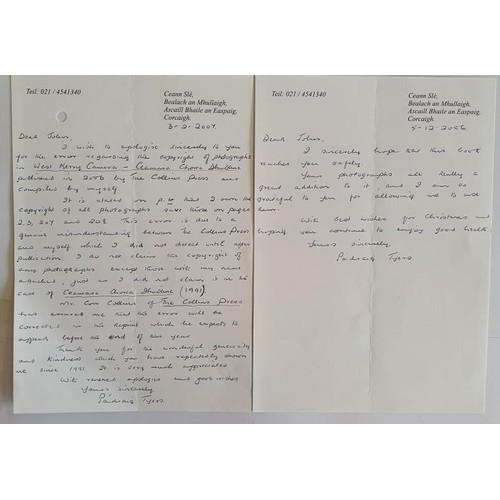 Teil: 021 / 4541340
Ceann Slé,
Bealach an Mhullaigh,
Ascaill Bhaile an Easpaig,
Corcaigh.
3-2-2007.
Dear John,
I wish to apologise sincerely to you
for the error regarding the copyright of photographs
in West Kerry Camera - Ceamara Chorca Dhuibhne
published in 2006 by The Collins Press and
compiled by myself.
It is stated on p. that I own the
copyright of all photographs save those on pages
2, 3, 204 and 208. This error is due to a
genuine misunderstanding between The Collins Press
and myself which I did not detect until after
publication. I do not claim the copyright of
any photographs except those with my name
attached, just as I did not claim it in the
case of Ceamara Chorca Dhuibhne (1991).
Mr. Con Collins of The Collins Press
has assured me that the error will be
corrected in the reprint which he expects to
appear before the end of the year
Thank you for the wonderful generosity
and kindness which you have repeatedly shown
me since 1991. It is very much appreciated.
With renewed apologies and good wishes
Yours sincerely,
Pádraig Tyers
Teil: 021 / 4541340
Ceann Slé,
Bealach an Mhullaigh,
Ascaill Bhaile an Easpaig,
Corcaigh.
5-12-2006
Dear John,
I sincerely hope that this book
reaches you safely.
Your photographs are really a
great addition to it, and I am so
grateful to you for allowing me to use
them.
With best wishes for Christmas and
hoping you continue to enjoy good health
Yours sincerely,
Pádraig Tyers